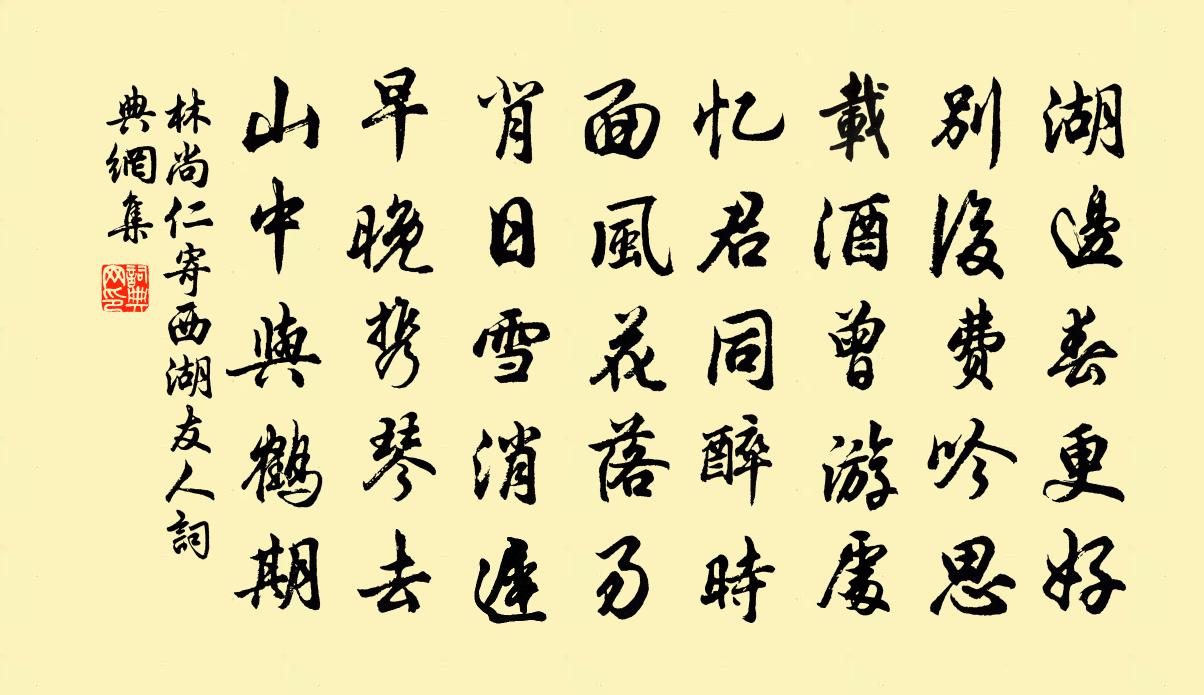 湖邊春更好
別後費吟思
載酒曾游處
忆君同醉時
面風花落易
背日雪消遲
早晚携琴去
山中與鶴期
林尚仁寄西湖友人詞
典網集
詞典
网印